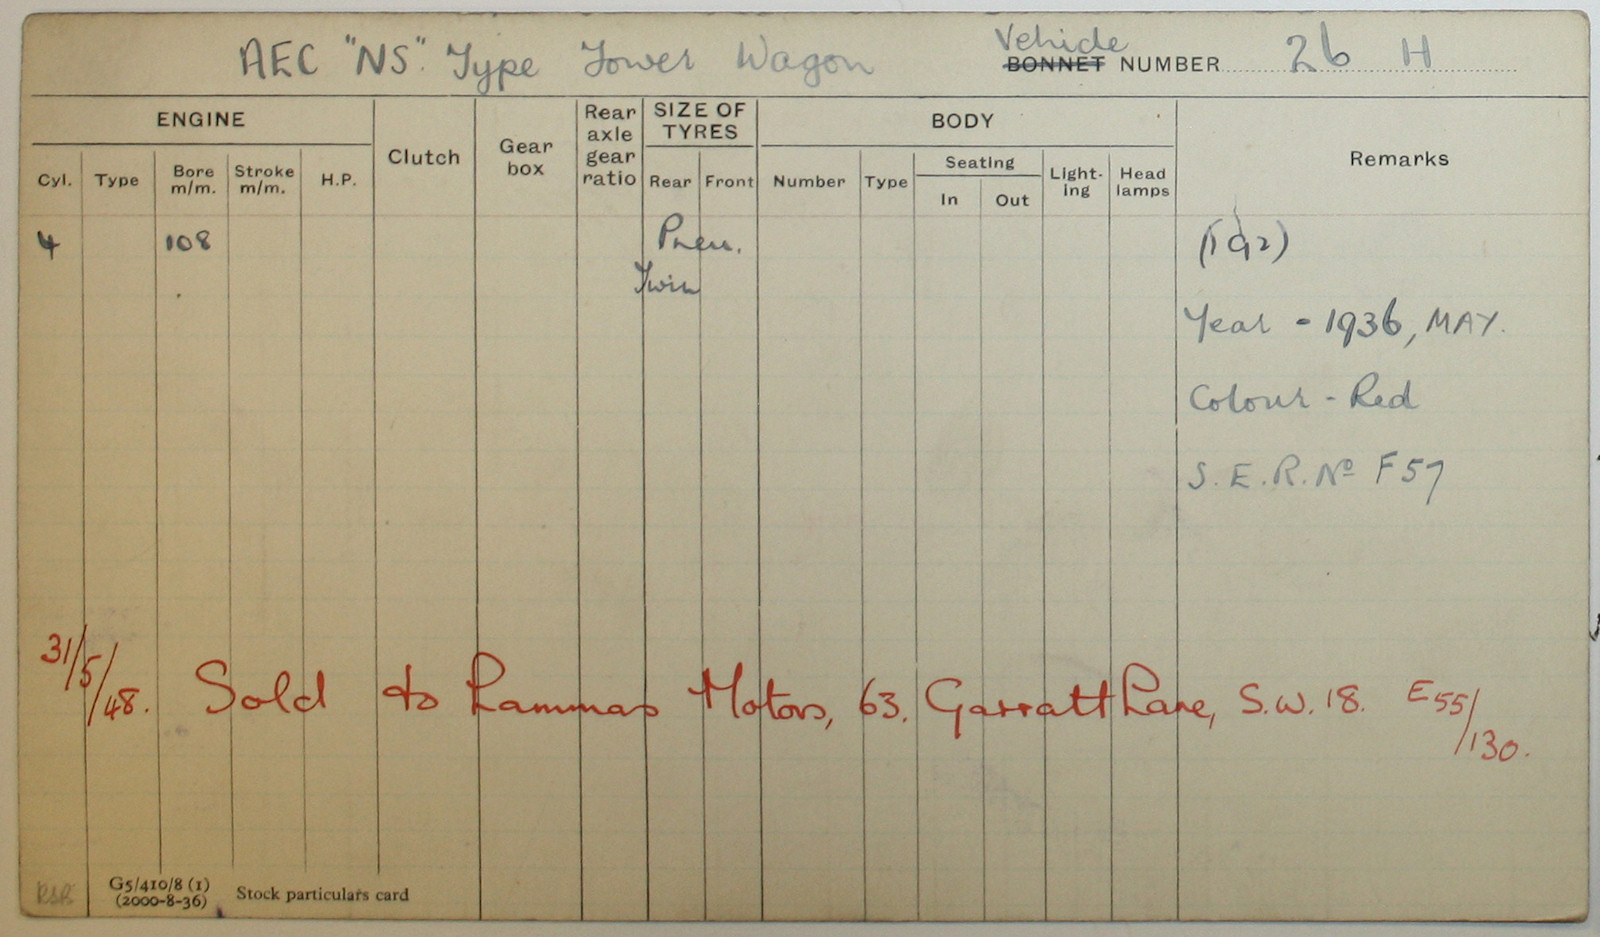 AEC "NS". Type Tower Wagon
Vehicle
BONNET NUMBER 26 H
ENGINE
Clutch
Gear box
Rear axle gear ratio
SIZE OF TYRES
BODY
Remarks
Cyl. Type Bore m/m. Stroke m/m. H.P.
Rear Front
Number Type Seating
In Out
Light-ing
Head lamps
4 108 Pneu.
Twin
Year - 1936, MAY.
Colour - Red
S.E.R. Nº F57
31/5/48. Sold to Lammas Motors, 63. Garratt Lane, S.W.18. E55/130.
G5/410/8 (1)
(2000-8-36)
Stock particulars card